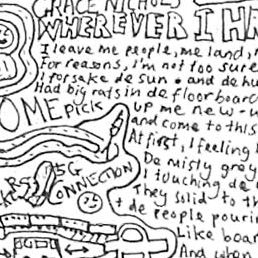 GRACE NICHOLS
WHEREVER I HA
I leave me people, me land, m
For reasons, I'm not too sure
I forsake de sun
and de hu
Had big rats in de floorboard
OME
pick up me new-
and come to this
At first, I feeling
De misty grey
I touching de
They solid to th
CONNECTION
+ de people pourin
Like boar
And when